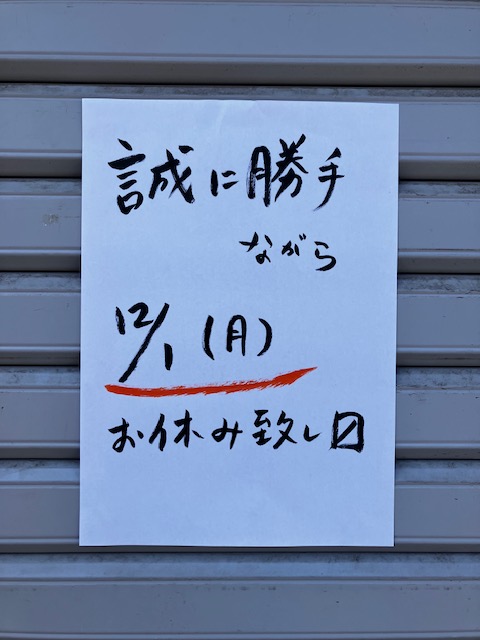 誠に勝手
ながら
12/1(月)
お休み致し〼